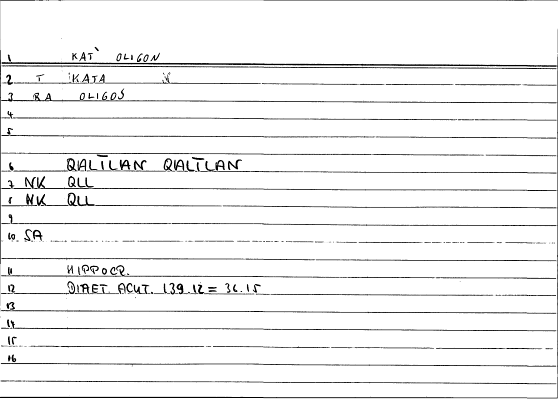 1 KAT` OLIGON
2 T KATA
3 RA OLIGOS
4
5
6 QALĪLAN QALĪLAN
7 NK QLL
8 NK QLL
9
10 SA
11 HIPPOCR.
12 DIAET. ACUT. 139.12 = 36.15
13
14
15
16